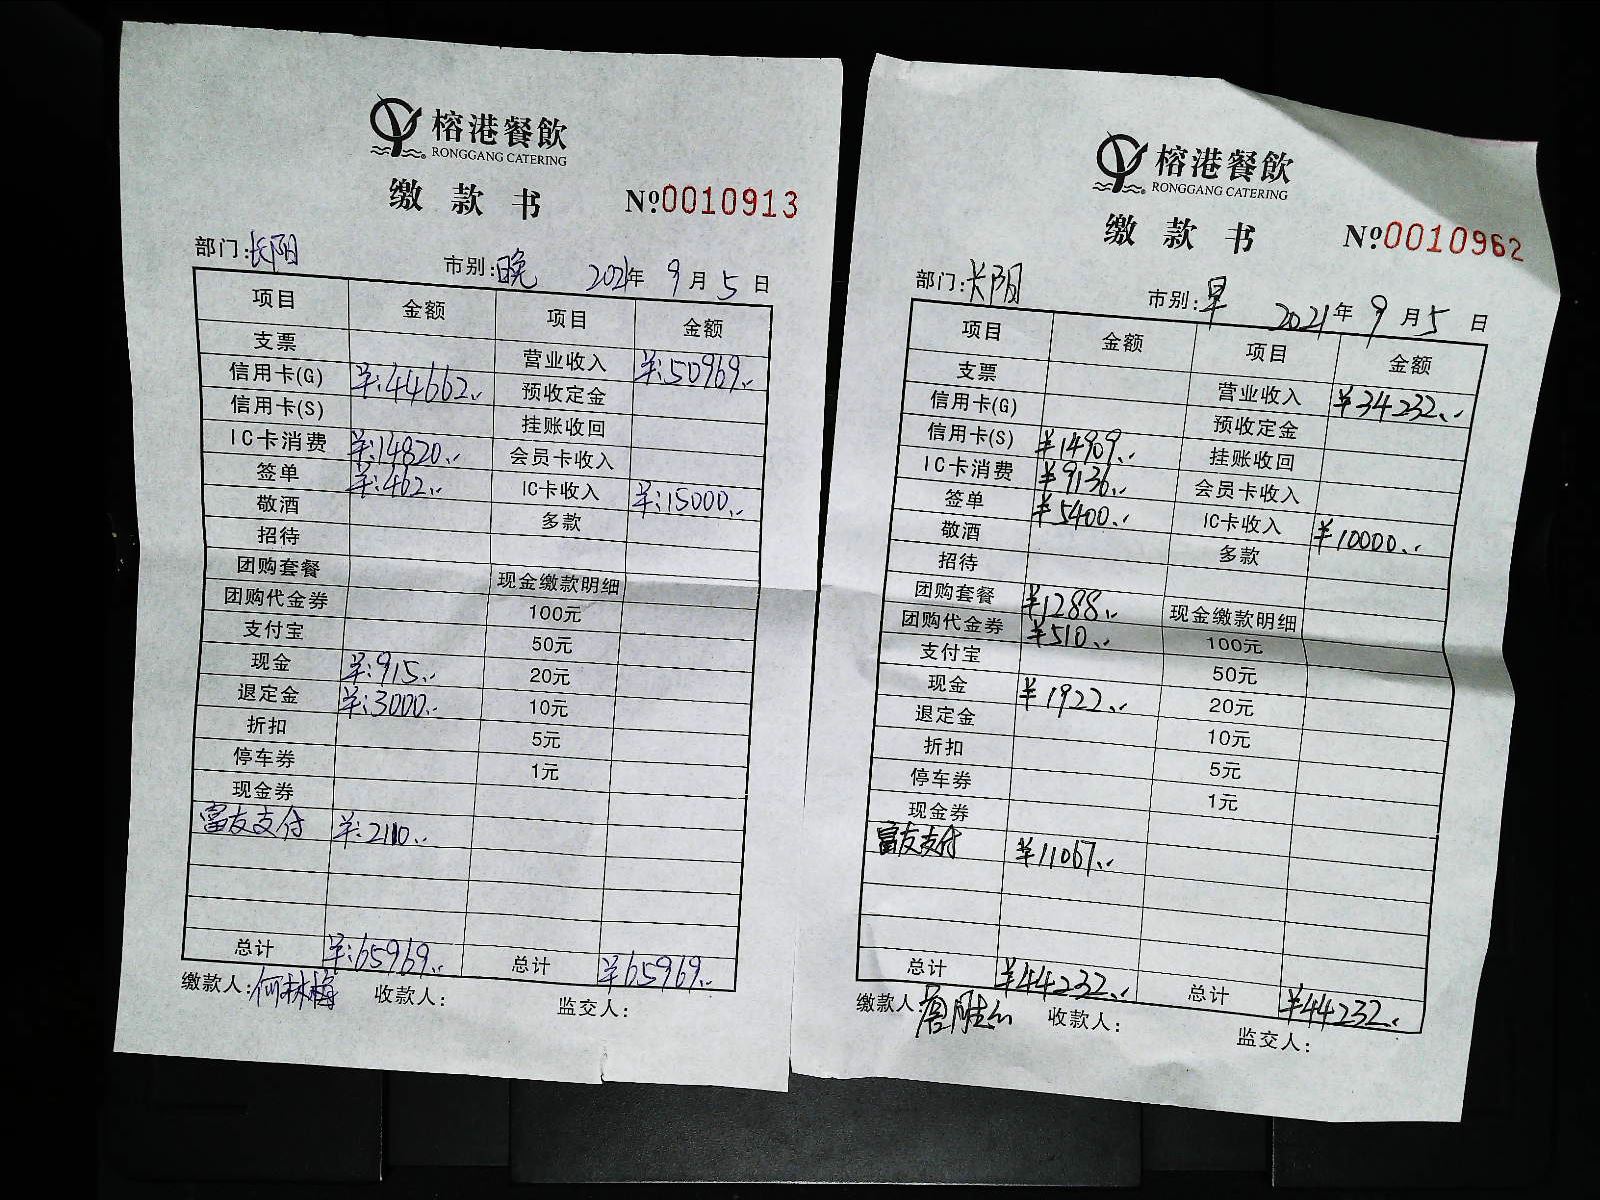 榕港餐飲
RONGGANG CATERING
缴款书 №0010913
部门:长阳 市别:晚 2021年9月5日
项目 金额 项目 金额
支票 营业收入 ¥:50969..
信用卡(G) ¥:44662.. 预收定金
信用卡(S) 挂账收回
IC卡消费 ¥:14820.. 会员卡收入
签单 ¥:462.. IC卡收入 ¥:15000..
敬酒 多款
招待
团购套餐 现金缴款明细
团购代金券 100元
支付宝 50元
现金 ¥:915.. 20元
退定金 ¥:3000.. 10元
折扣 5元
停车券 1元
现金券
富友支付 ¥:2110..
总计 ¥:65969.. 总计 ¥65969..
缴款人:何林梅 收款人: 监交人:
榕港餐飲
RONGGANG CATERING
缴款书 №0010962
部门:长阳 市别:早 2021年9月5日
项目 金额 项目 金额
支票 营业收入 ¥34232..
信用卡(G) 预收定金
信用卡(S) ¥14909.. 挂账收回
IC卡消费 ¥9136.. 会员卡收入
签单 ¥5400.. IC卡收入 ¥10000..
敬酒 多款
招待
团购套餐 ¥1288.. 现金缴款明细
团购代金券 ¥510.. 100元
支付宝 50元
现金 ¥1922.. 20元
退定金 10元
折扣 5元
停车券 1元
现金券
富友支付 ¥11067..
总计 ¥44232.. 总计 ¥44232..
缴款人: 收款人: 监交人: